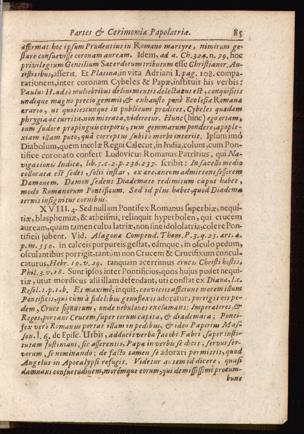 Partes & Cerimoniæ Papolatriæ. 85
affirmat hoc ipsum Prudentius in Romano martyre, nimirum ge-
stare consuevisse coronam auream. Idem, ad a. Ch. 324. n. 79, hoc
privilegium Gentilium Sacerdotum tribuens esse Christianis, An-
tistitibus, asserit. Et Platina, in vita Adriani I. pag. 102. compa-
rationem, inter coronam Cybeles & Papæ, instituit his verbis:
Paulus II. adeò muliebribus delinimentis delectatus est, conquisitis
undique magno precio gemmis & exhausto pœnè Ecclesiæ Romanæ
ærario, ut quotiescunque in publicum prodiret, Cybeles quædam
phrygia ac turrita, non mitrata, videretur. Hunc (hinc) ego ortam,
tum sudore præpinguis corporis, tum gemmarum pondere, apople-
xiam illam puto, quâ correptus subitò morbo interiit. Ipsum imò
Diabolum, quem incolæ Regni Calecut, in India, colunt, cum Pon-
tifice coronato confert Ludovicus Romanus Patritius, qui Na-
vigationes Indica, lib. 5. c. 2. p. 236. 237. scribit: In sacelli medio
collocata est sedes, solii instar, ex ære, æneum admittens, sistérem
Damonem. Damon sedens Diademate redimitum caput habet,
modo Romanorum Pontificum. Sed id plus habet, quod Diadema
terminis insignitur cornibus.
XVIII. 4. Sed nullum Pontifex Romanus superbiæ, nequi-
tiæ, blasphemiæ, & atheismi, relinquit hyperbolen, qui crucem
auream, quam tamen cultu latriæ, non sine idololatria, colere Pon-
tificii jubent. Vid. Alegona Compend. Thom. P. 3. q. 25. art. 4.
p. m. 350. in calceis purpureis gestat, eâmque, in osculo pedum,
osculantibus porrigit, tantùm non Crucem & Crucifixum concul-
caturus, Hebr. 10. v. 29. tanquam acerrimus crucis Christi hostis,
Phil. 3. v. 18. Sunt ipsos inter Pontificios, quos hujus pudet nequi-
tiæ, utut mordicus alii illam defendant, uti constat ex Diane, l. c.
Resol. 1. p. 16. Ex maximè, inquit, convenire assistunt morem idunt
Pontificis, qui cùm à fidelibus genuflexis adoratur, porrigit eis pe-
dem, Cruce signatum, unde nebulones exclamant: Imperatores &
Reges portant Crucem super eorum capita, & diademata; Ponti-
fex verò Romanus portat illam in pedibus, & ideo Papirius Mas-
son. l. 6. de Episc. Urbis, adducto verbo Jacobi Fabri, super insti-
tutam Justiniani, sic asserentis, Papa in verbis se dicit, servus ser-
vorum, se nominando; de facto tamen se adorari permittit, quod
Angelus in Apocalypsi refugit. Videtur autem id dicere, quasi
damnans consuetudinem, morémque eorum, qui demississimè procum-
bunt